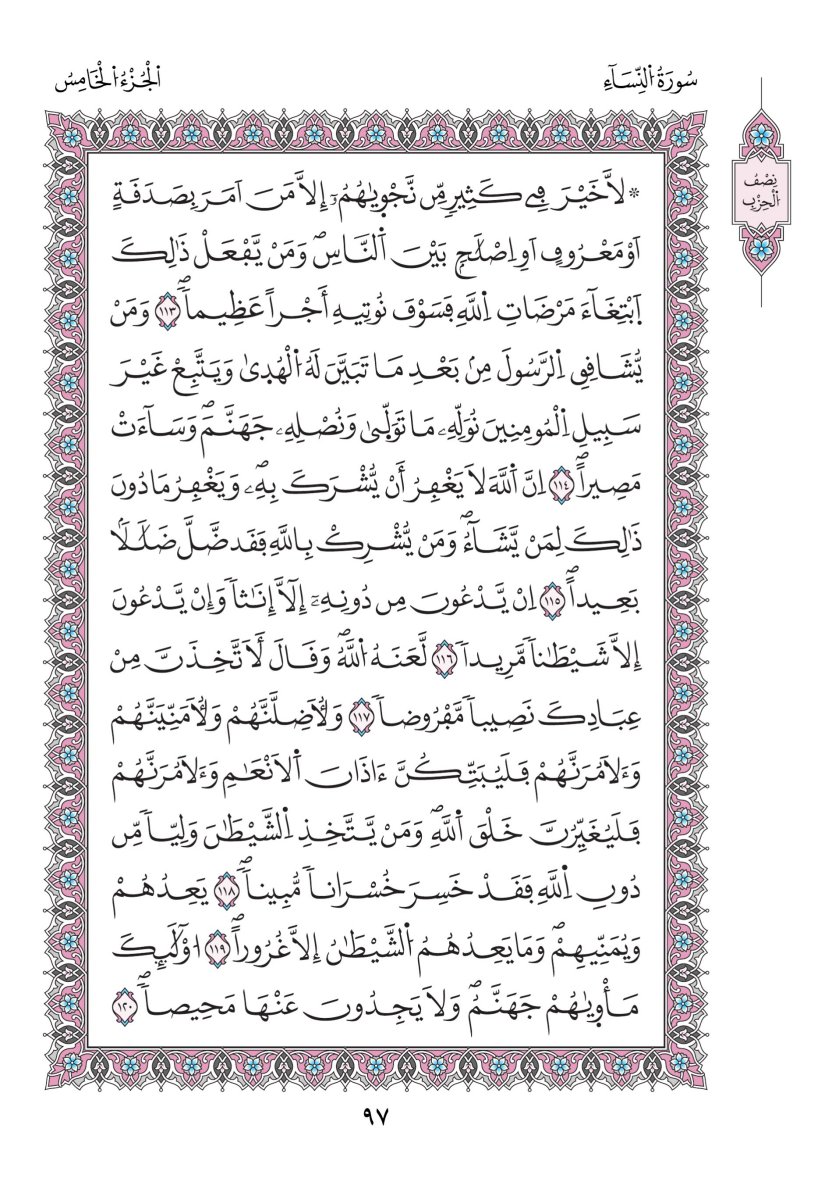 سُورَةُ النِّسَآءِ
الْجُزْءُ الْخَامِسُ
نِصْفُ
الْحِزْبِ
* لَّا خَيْرَ فِے كَثِيرٖ مِّن نَّجْو۪يٰهُمُۥٓ إِلَّا مَنَ اَمَرَ بِصَدَقَةٍ
اَوْ مَعْرُوفٍ اَوِ اِصْلَٰحِۢ بَيْنَ اَ۬لنَّاسِۖ وَمَنْ يَّفْعَلْ ذَٰلِكَ
اَ۪بْتِغَآءَ مَرْضَاتِ اِ۬للَّهِ فَسَوْفَ نُوتِيهِ أَجْراً عَظِيماٗۖ ١١٣ وَمَنْ
يُّشَاقِقِ اِ۬لرَّسُولَ مِنۢ بَعْدِ مَا تَبَيَّنَ لَهُ اُ۬لْهُد۪يٰ وَيَتَّبِعْ غَيْرَ
سَبِيلِ اِ۬لْمُومِنِينَ نُوَلِّهِۦ مَا تَوَلّ۪يٰ وَنُصْلِهِۦ جَهَنَّمَۖ وَسَآءَتْ
مَصِيراًۖ ١١٤ اِنَّ اَ۬للَّهَ لَا يَغْفِرُ أَنْ يُّشْرَكَ بِهِۦۖ وَيَغْفِرُ مَا دُونَ
ذَٰلِكَ لِمَنْ يَّشَآءُۖ وَمَنْ يُّشْرِكْ بِاللَّهِ فَقَد ضَّلَّ ضَلَٰلَاۢ
بَعِيداًۖ ١١٥ اِنْ يَّدْعُونَ مِن دُونِهِۦٓ إِلَّآ إِنَٰثاٗ وَإِنْ يَّدْعُونَ
إِلَّا شَيْطَٰناٗ مَّرِيداٗ ١١٦ لَّعَنَهُ اُ۬للَّهُۖ وَقَالَ لَأَتَّخِذَنَّ مِنْ
عِبَادِكَ نَصِيباٗ مَّفْرُوضاٗ ١١٧ وَلَأُضِلَّنَّهُمْ وَلَأُمَنِّيَنَّهُمْ
وَءَلَامُرَنَّهُمْ فَلَيُبَتِّكُنَّ ءَاذَانَ اَ۬لَانْعَٰمِ وَءَلَامُرَنَّهُمْ
فَلَيُغَيِّرُنَّ خَلْقَ اَ۬للَّهِۖ وَمَنْ يَّتَّخِذِ اِ۬لشَّيْطَٰنَ وَلِيّاٗ مِّن
دُونِ اِ۬للَّهِ فَقَدْ خَسِرَ خُسْرَاناٗ مُّبِيناٗۖ ١١٨ يَعِدُهُمْ
وَيُمَنِّيهِمْۖ وَمَا يَعِدُهُمُ اُ۬لشَّيْطَٰنُ إِلَّا غُرُوراًۖ ١١٩ ا۟وْلَٰٓئِكَ
مَأْو۪يٰهُمْ جَهَنَّمُۖ وَلَا يَجِدُونَ عَنْهَا مَحِيصاٗۖ ١٢٠
٩٧